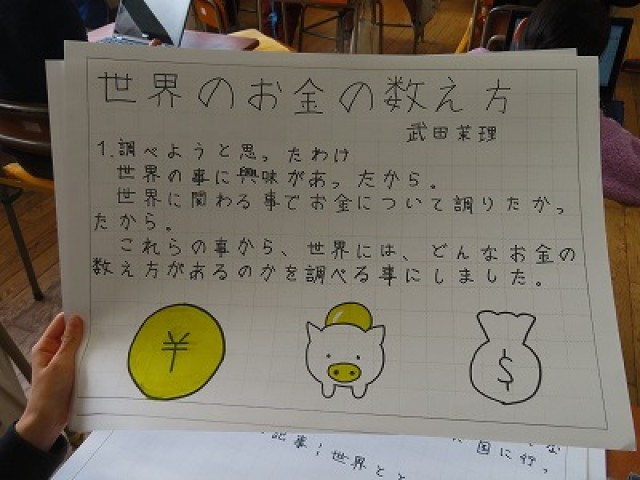 世界のお金の数え方
武田菜理
1.調べようと思ったわけ
世界の事に興味があったから。
世界に関わる事でお金について調りたかっ
たから。
これらの事から、世界には、どんなお金の
数え方があるのかを調べる事にしました。
¥
$
国に行っ
記事!世界とと